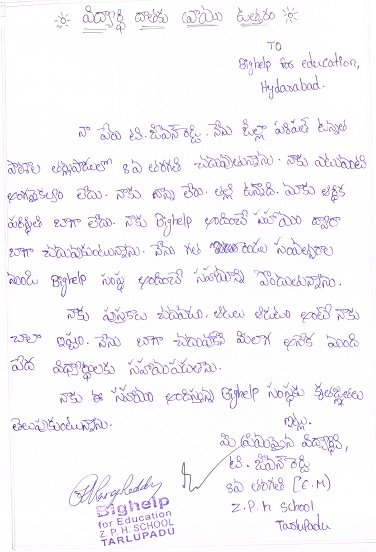 విద్యార్థి దాతకు వ్రాయు ఉత్తరం
TO
Bighelp for education,
Hyderabad.
నా పేరు టి. జీవన్ రెడ్డి. నేను జిల్లా పరిషత్ ఉన్నత
పాఠశాల తర్లుపాడులో 8వ తరగతి చదువుతున్నాను. నాకు ఎటువంటి
అంగవైకల్యం లేదు. నాకు నాన్న లేరు. తల్లి ఉన్నారు. మాకు ఆర్థిక
పరిస్థితి బాగా లేదు. నాకు Bighelp అందించే సహాయం ద్వారా
బాగా చదువుకుంటున్నాను. నేను గత రెండు సంవత్సరాల
నుండి Bighelp సంస్థ అందించే సహాయాన్ని పొందుతున్నాను.
నాకు పుస్తకాలు చదవడం, ఆటలు ఆడటం అంటే నాకు
చాలా ఇష్టం. నేను బాగా చదువుకొని మీలాగ అనేక మంది
పేద విద్యార్థులకు సహాయపడతాను.
నాకు ఈ సహాయం అందిస్తున్న Bighelp సంస్థకు కృతజ్ఞతలు
తెలుపుకుంటున్నాను.
ఇట్లు,
మీ ప్రియమైన విద్యార్థి,
టి. జీవన్ రెడ్డి
8వ తరగతి (E.M)
Z.P.H School
Tarlupadu
Bighelp
for Education
Z P.H. SCHOOL
TARLUPADU